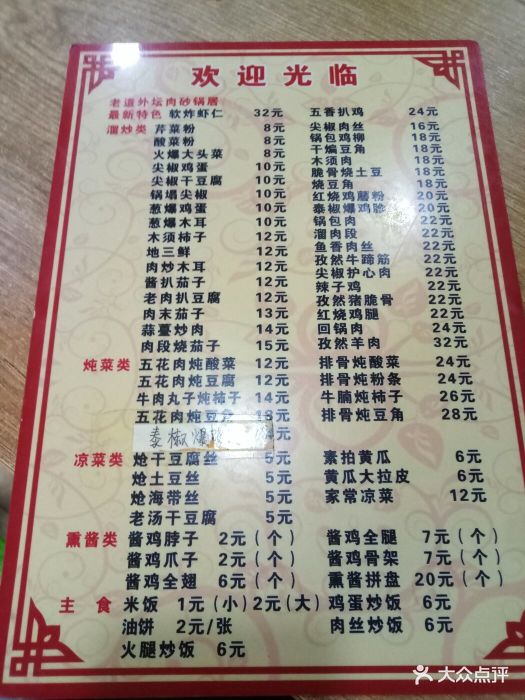 欢迎光临
老道外坛肉砂锅居
最新特色 软炸虾仁 32元 五香扒鸡 24元
溜炒类 芹菜粉 8元 尖椒肉丝 16元
酸菜粉 8元 锅包鸡柳 18元
火爆大头菜 8元 干煸豆角 18元
尖椒鸡蛋 10元 木须肉 18元
尖椒干豆腐 10元 脆骨烧土豆 18元
锅塌尖椒 10元 烧豆角 18元
葱爆鸡蛋 10元 红烧鸡蘑粉 20元
葱爆木耳 10元 泰椒爆鸡胗 20元
木须柿子 12元 锅包肉 22元
地三鲜 12元 溜肉段 22元
肉炒木耳 12元 鱼香肉丝 22元
酱扒茄子 12元 孜然牛蹄筋 22元
老肉扒豆腐 12元 尖椒护心肉 22元
肉末茄子 13元 辣子鸡 22元
蒜薹炒肉 14元 孜然猪脆骨 22元
肉段烧茄子 15元 红烧鸡腿 22元
回锅肉 24元
孜然羊肉 32元
炖菜类 五花肉炖酸菜 12元 排骨炖酸菜 24元
五花肉炖豆腐 12元 排骨炖粉条 24元
牛肉丸子炖柿子 14元 牛腩炖柿子 26元
五花肉炖豆角 排骨炖豆角 28元
泰椒爆
元
凉菜类 炝干豆腐丝 5元 素拍黄瓜 6元
炝土豆丝 5元 黄瓜大拉皮 6元
炝海带丝 5元 家常凉菜 12元
老汤干豆腐 5元
熏酱类 酱鸡脖子 2元（个） 酱鸡全腿 7元（个）
酱鸡爪子 2元（个） 酱鸡骨架 7元（个）
酱鸡全翅 6元（个） 熏酱拼盘 20元（个）
主食 米饭 1元（小）2元（大） 鸡蛋炒饭 6元
油饼 2元/张 肉丝炒饭 6元
火腿炒饭 6元
大众点评